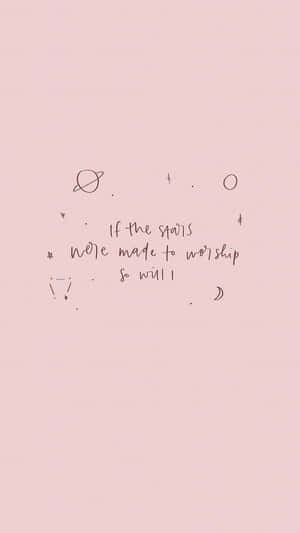 If the stars
were made to worship
so will I